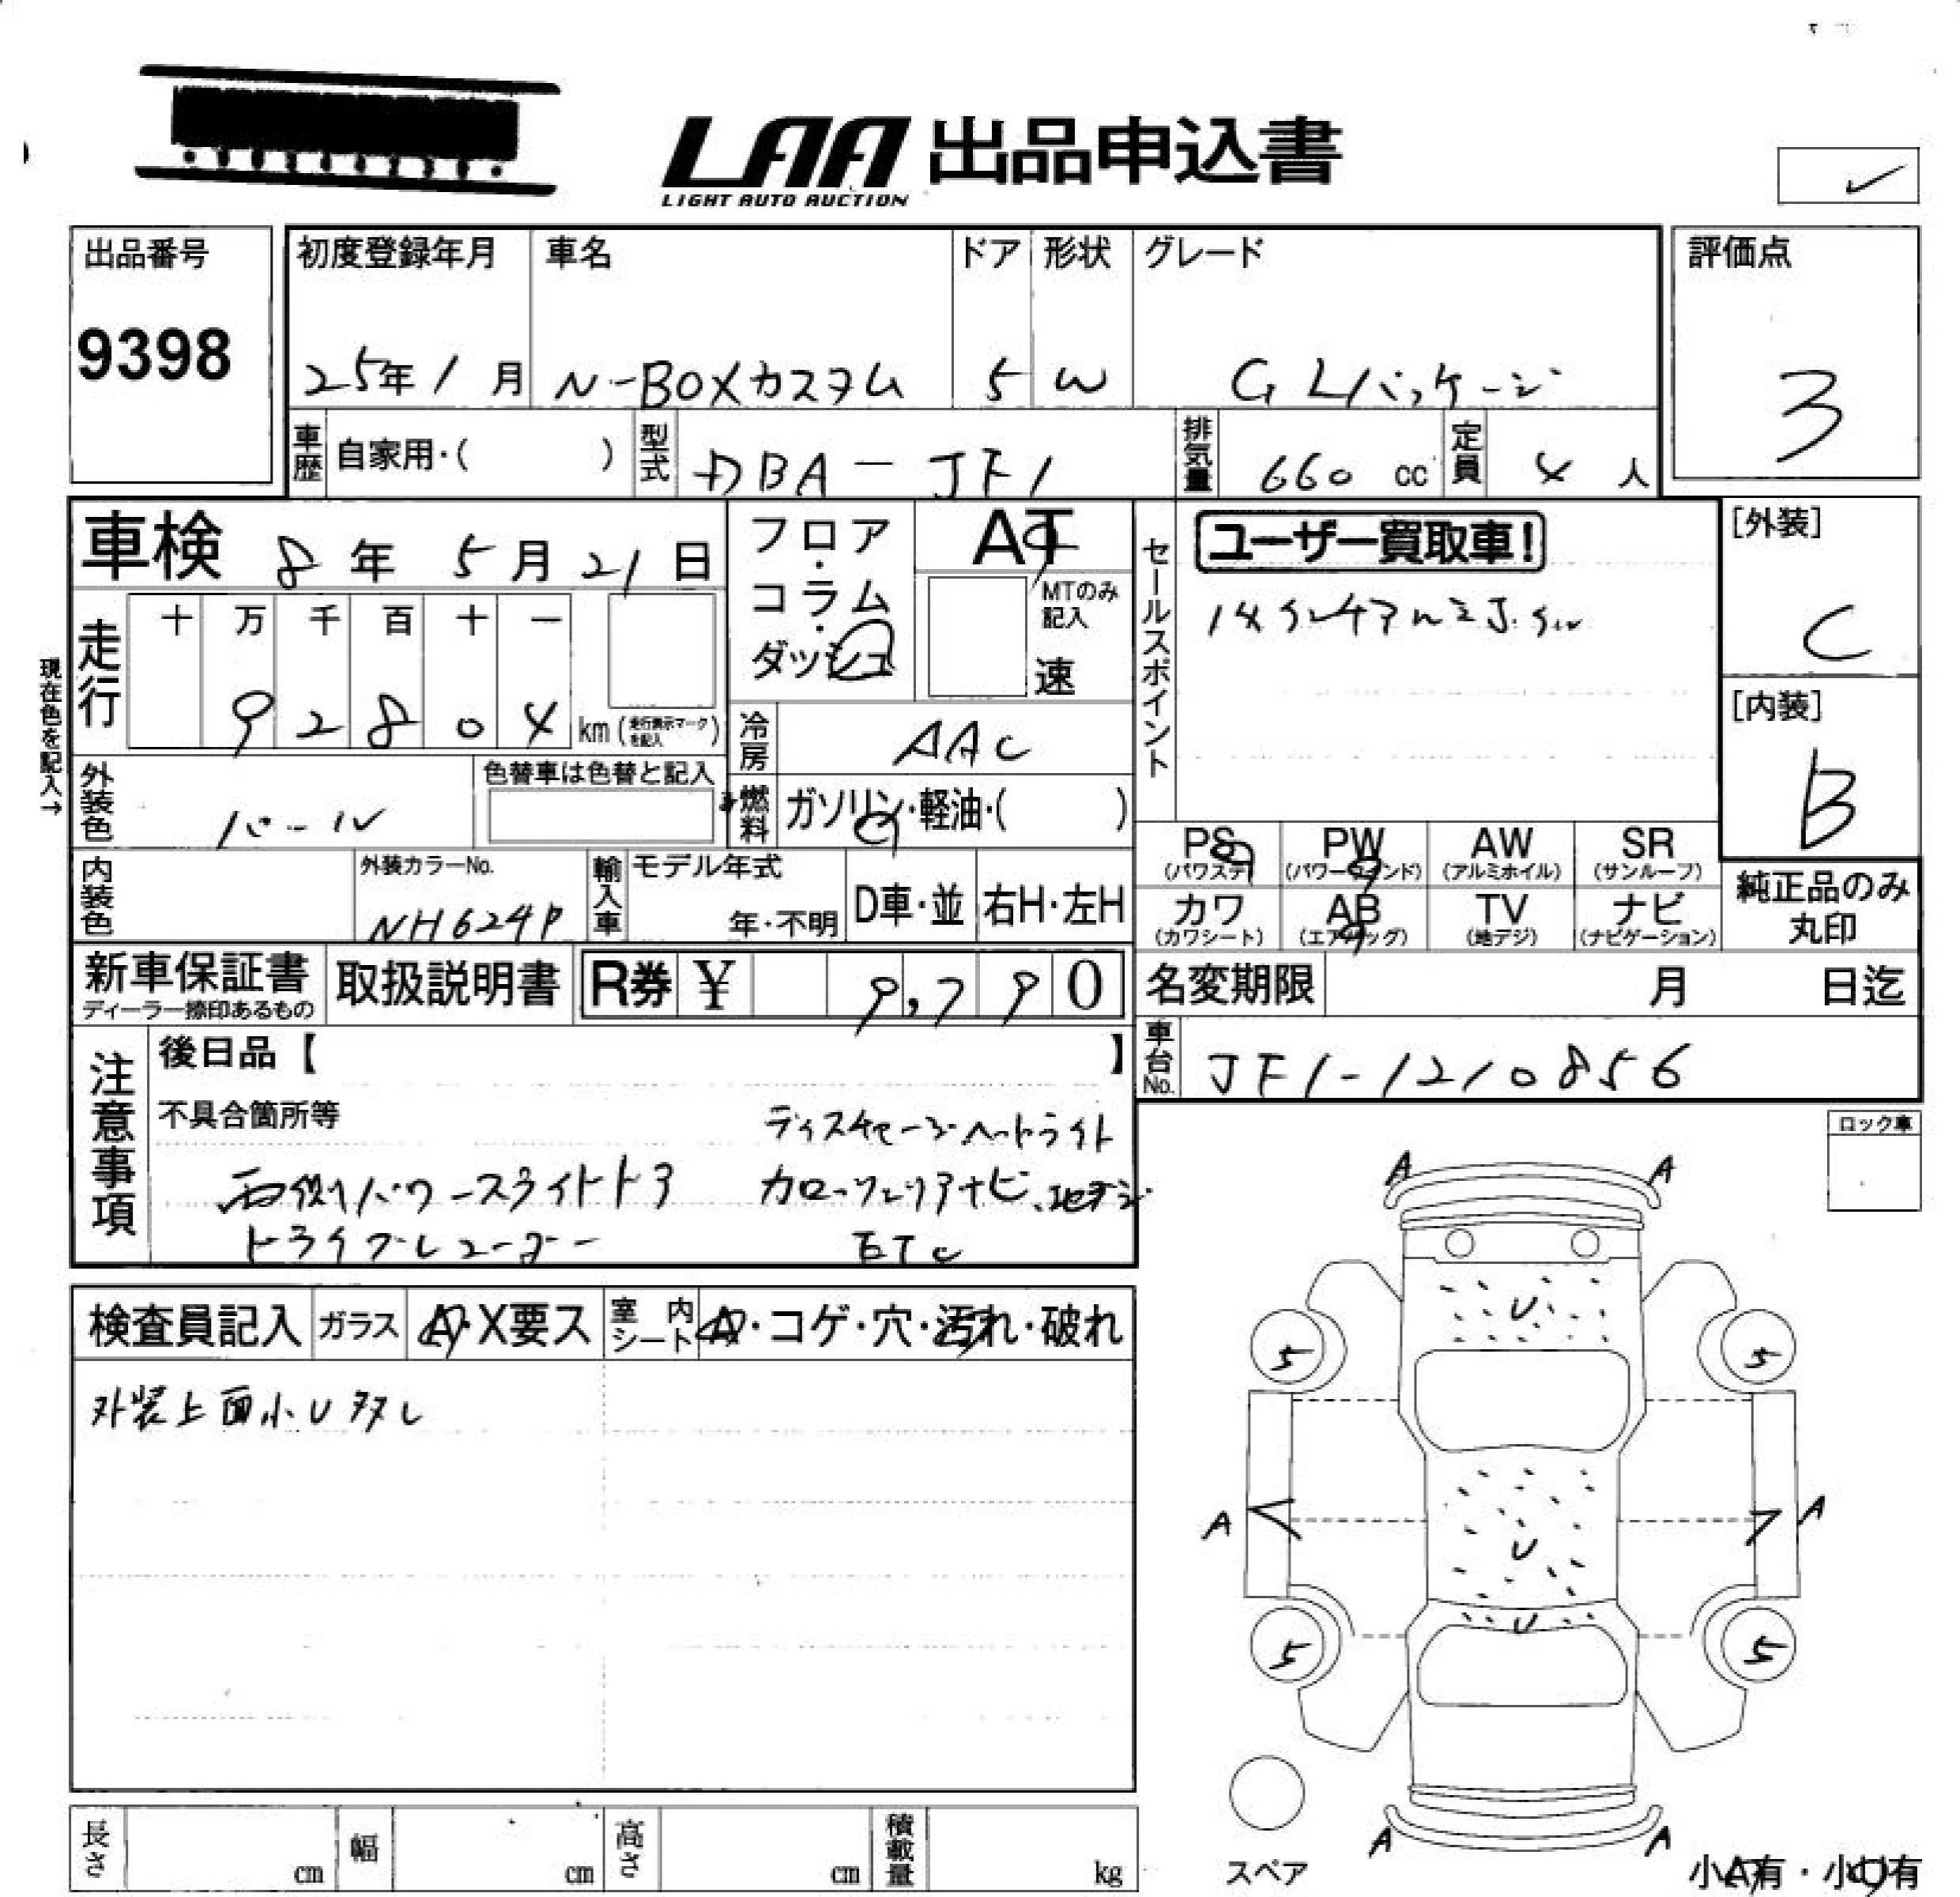 LAA 出品申込書
LIGHT AUTO AUCTION
✓
出品番号
9398
初度登録年月
25年1月
車名
N-BOXカスタム
ドア
5
形状
W
グレード
G Lパッケージ
評価点
3
車歴 自家用・( )
型式 DBA-JF1
排気量 660 cc
定員 4 人
車検 8年 5月 21日
現在色を記入→
走行
十 万 千 百 十 一
9 2 8 0 4 km (走行表示マークを記入)
フロア・コラム・ダッシュ
AT
MTのみ記入
速
セールスポイント
ユーザー買取車!
[外装]
C
[内装]
B
冷房 AAC
外装色 パール
色替車は色替と記入
燃料 ガソリン・軽油・( )
内装色
外装カラーNo.
NH624P
輸入車
モデル年式
年・不明
D車・並
右H・左H
PS (パワステ)
PW (パワーウィンド)
AW (アルミホイル)
SR (サンルーフ)
カワ (カワシート)
AB (エアバッグ)
TV (地デジ)
ナビ (ナビゲーション)
純正品のみ丸印
新車保証書
ディーラー捺印あるもの
取扱説明書
R券 ¥ 9,790
名変期限 月 日迄
車台No. JF1-1210856
注意事項
後日品【 】
不具合箇所等
ディスチャージヘッドライト
両側パワースライドドア カロッツェリアナビ、地デジ
ドライブレコーダー ETC
ロック車
検査員記入
ガラス A・X要ス
室内シート A・コゲ・穴・汚れ・破れ
外装上面小U多し
A A
U
5 5
A A
U
U
5 5
A A
スペア
小A有・小U有
長さ cm
幅 cm
高さ cm
積載量 kg